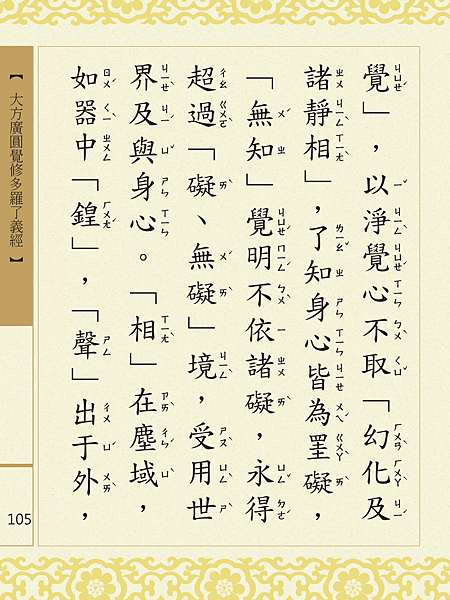 覺」，以淨覺心不取「幻化及
諸靜相」，了知身心皆為罣礙，
「無知」覺明不依諸礙，永得
超過「礙、無礙」境，受用世
界及與身心。「相」在塵域，
如器中「鍠」，「聲」出于外，
【大方廣圓覺修多羅了義經】
105